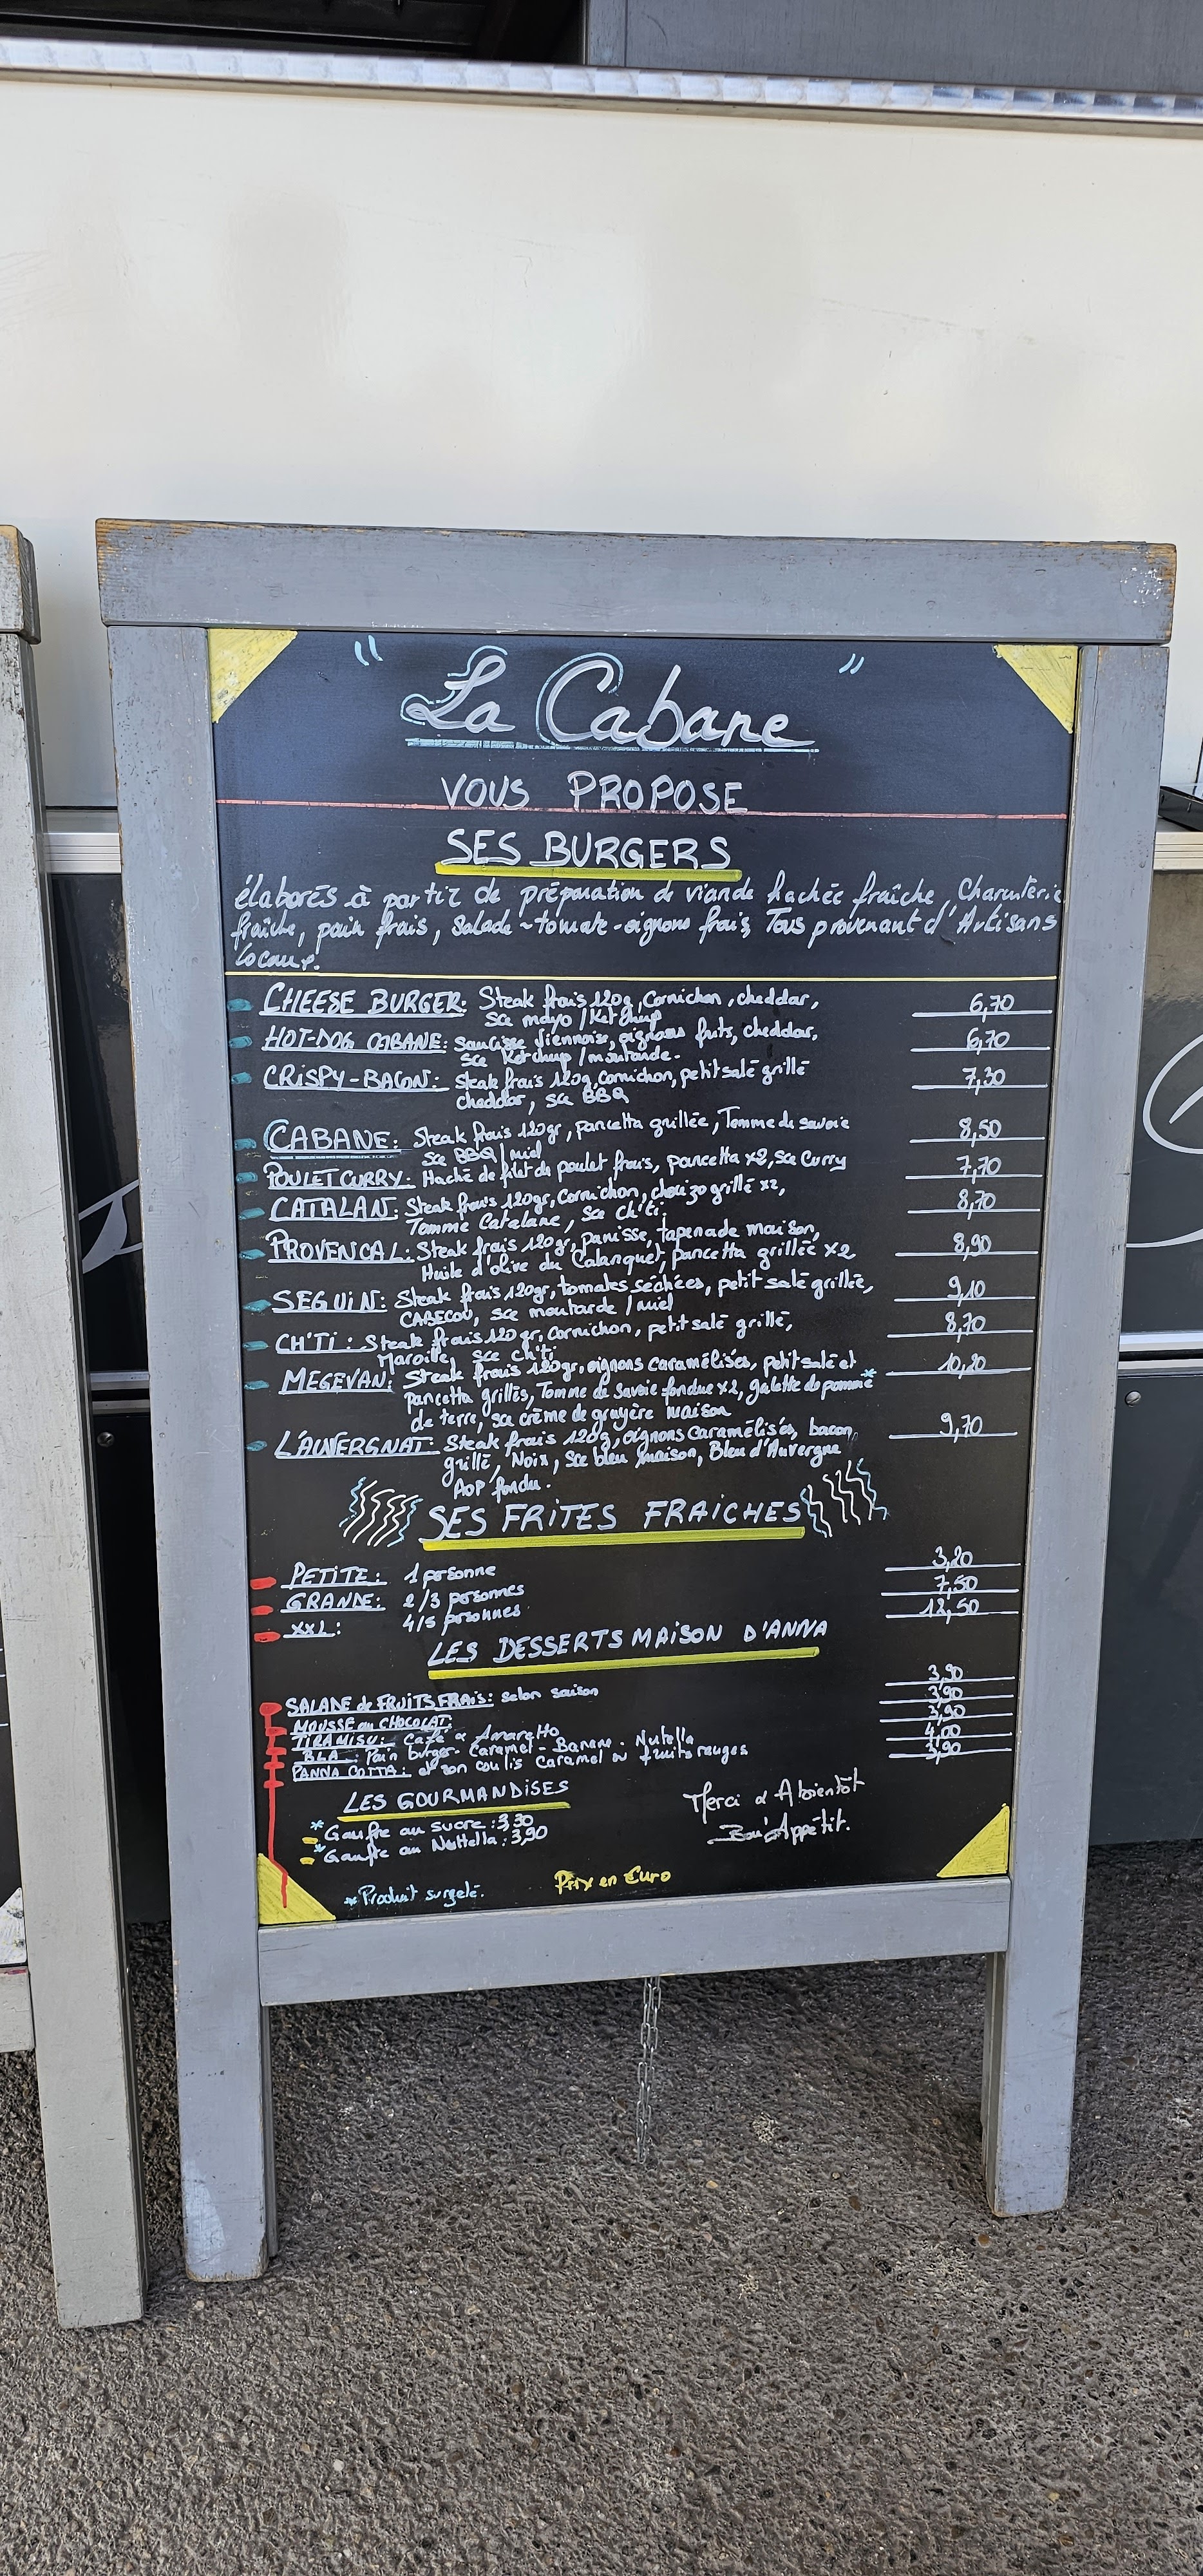 "La Cabane"
VOUS PROPOSE
SES BURGERS
élaborés à partir de préparation de viande hachée fraîche, Charcuterie
fraîche, pain frais, Salade - tomate - oignons frais, Tous provenant d'Artisans
locaux.
CHEESE BURGER: Steak frais 120g, Cornichon, cheddar, 6,70
sce mayo / Ketchup
HOT-DOG CABANE: saucisse Viennoise, oignons frits, cheddar, 6,70
sce Ketchup / moutarde.
CRISPY-BACON: Steak frais 120g, Cornichon, petit salé grillé 7,30
cheddar, sce BBQ
CABANE: Steak frais 120gr, pancetta grillée, Tomme de savoie 8,50
sce BBQ / miel
POULET CURRY: Haché de filet de poulet frais, pancetta x2, sce Curry 7,70
CATALAN: Steak frais 120gr, Cornichon, chorizo grillé x2, 8,70
Tomme Catalane, sce ch'ti.
PROVENCAL: Steak frais 120gr, panisse, tapenade maison, 8,90
Huile d'olive du Calanquet, pancetta grillée x2
SEGUIN: Steak frais 120gr, tomates séchées, petit salé grillée, 9,10
CABECOU, sce moutarde / miel
CH'TI: Steak frais 120 gr, Cornichon, petit salé grillé, 8,70
Maroille, sce ch'ti
MEGEVAN: Steak frais 120gr, oignons caramélisés, petit salé et 10,20
pancetta grillés, Tomme de Savoie fondue x2, galette de pomme*
de terre, sce crème de gruyère maison
L'AUVERGNAT: Steak frais 120g, oignons caramélisés, bacon 9,70
grillé, Noix, sce bleu maison, Bleu d'Auvergne
AOP fondu.
SES FRITES FRAICHES
PETITE: 1 personne 3,20
GRANDE: 2/3 personnes 7,50
XXL: 4/5 personnes 12,50
LES DESSERTS MAISON D'ANNA
SALADE de FRUITS FRAIS: selon saison 3,90
MOUSSE au CHOCOLAT: 3,90
TIRAMISU: Café & Amaretto 3,90
BLA: Pain burger - Caramel - Banane - Nutella 4,00
PANNA COTTA: et son coulis Caramel ou fruits rouges 3,90
LES GOURMANDISES
* Gaufre au sucre: 3,30
* Gaufre au Nuttella: 3,90
Merci & A bientôt
Bon Appétit.
* Produit surgelé.
Prix en Euro